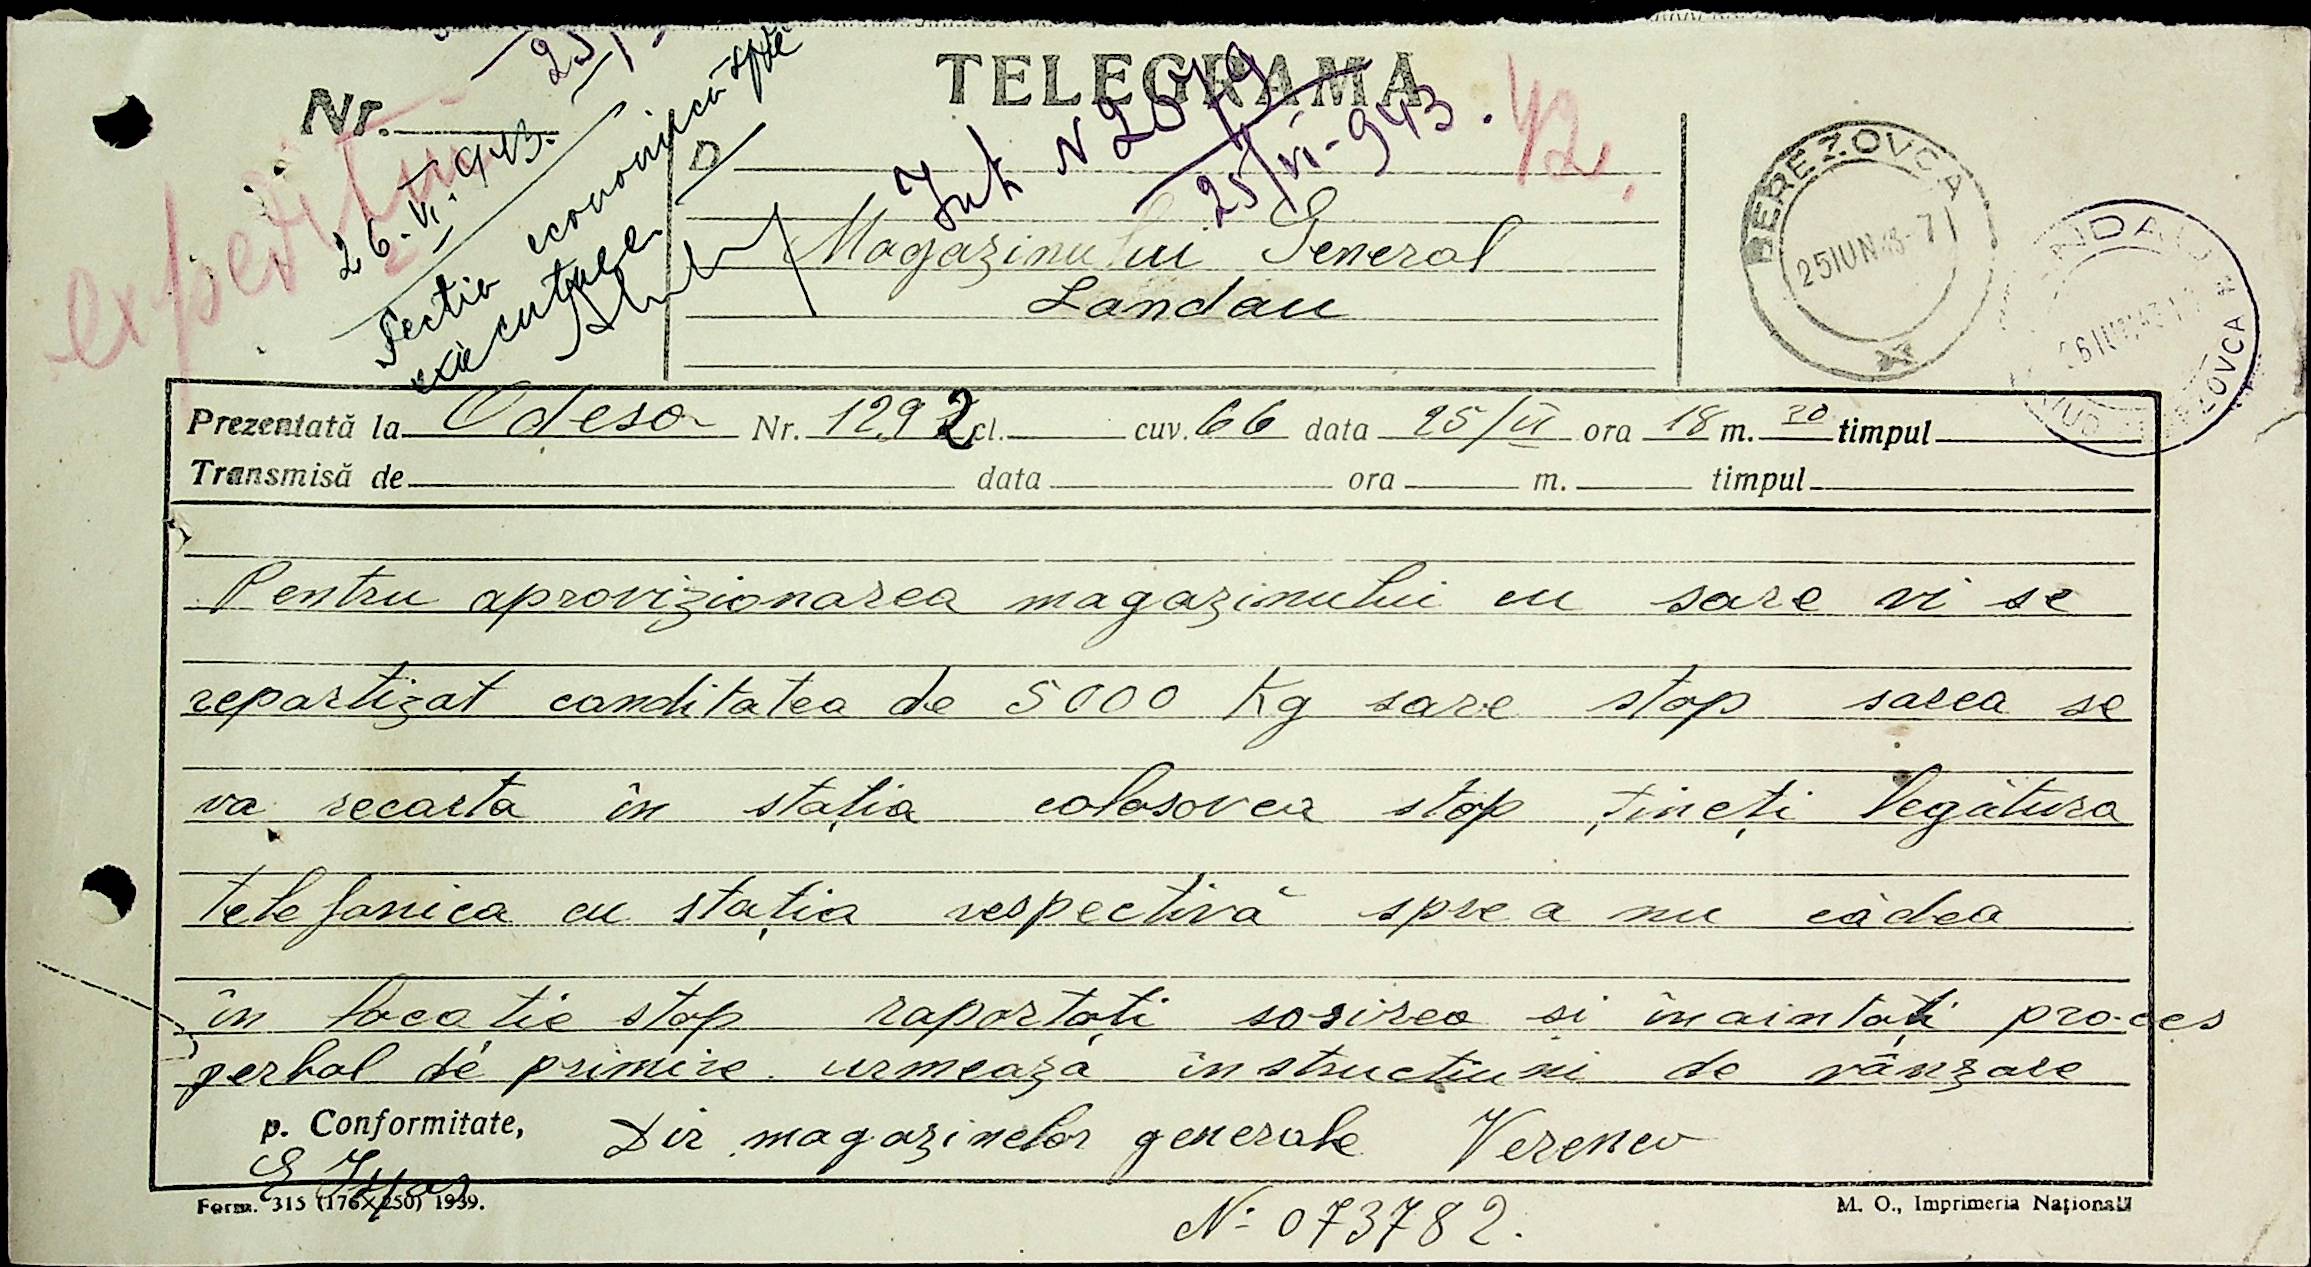 TELEGRAMA
Nr.
expeditu
26.VI.943.
Sectia economică spre
executare.
D
Int N 2079
25/VI-943.
42.
Magazinului General
Landau
BEREZOVCA
25IUN43-71
LANDAU
BEREZOVCA
Prezentată la Odesa Nr. 1292 cl. cuv. 66 data 25/VI ora 18 m. 20 timpul
Transmisă de data ora m. timpul
Pentru aprovizionarea magazinului cu sare vi se
repartizat canditatea de 5000 Kg sare stop sarea se
va recarta în stația colosovca stop țineți legătura
telefonica cu stația respectivă spre a nu cădea
în locație stop raportați sosirea si înaintați proces
verbal de primire. urmează instrucțiuni de vânzare
p. Conformitate, Dir magazinelor generale Verenev
Form. 315 (176×250) 1939.
N: 073782.
M. O., Imprimeria Națională